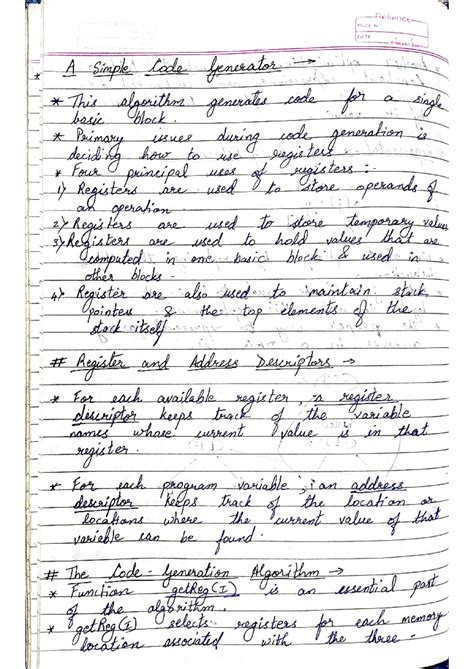 Reliance
PAGE No.
DATE
* A Simple Code Generator →
* This algorithm generates code for a single
basic block.
* Primary issues during code generation is
deciding how to use registers.
* Four principal uses of registers :-
1) Registers are used to store operands of
an operation
2) Registers are used to store temporary values
3) Registers are used to hold values that are
computed in one basic block & used in
other blocks.
4) Register are also used to maintain stack
pointers & the top elements of the
stack itself
# Register and Address Descriptors →
* For each available register, a register
descriptor keeps track of the variable
names whose current value is in that
register.
* For each program variable, an address
descriptor keeps track of the location or
locations where the current value of that
variable can be found.
# The Code-Generation Algorithm →
* Function getReg(I) is an essential part
of the algorithm.
* getReg(I) selects registers for each memory
location associated with the three-